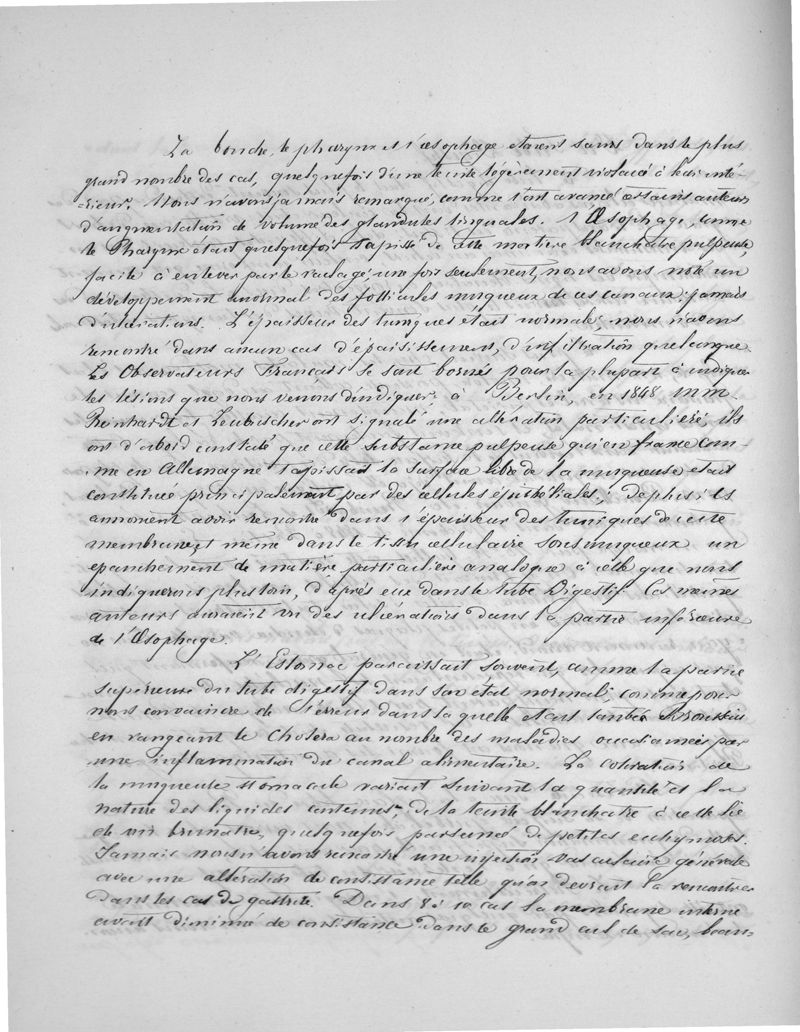 La bouche, le pharynx et l'œsophage étaient sains dans le plus
grand nombre des cas, quelquefois d'une teinte légèrement violacé à leur inté-
-rieur. Nous n'avons jamais remarqué, comme l'ont avancé certains auteurs
d'augmentation de volume des glandules linguales. l'Œsophage, comme
le Pharynx était quelquefois tapissé de cette matière blanchatre pulpeuse,
facile à enlever par le raclage; une fois seulement, nous avons noté un
développement anormal des follicules muqueux de ces canaux; jamais
d'ulcérations. L'épaisseur des tuniques était normale; nous n'avons
rencontré dans aucun cas d'épaisissement, d'infiltration quelconque.
Les Observateurs Français se sont bornés pour la plupart à indiquer
les lésions que nous venons d'indiquer; à Berlin, en 1848 MM.
Reinhardt et Leubuscher ont signalé une altération particulière, ils
ont d'abord constaté que cette substance pulpeuse qui en france com-
-me en Allemagne tapissait la surface libre de la muqueuse était
constituée principalement par des cellules épithéliales; de plus, ils
annoncent avoir rencontré dans l'épaisseur des tuniques de cette
membrane et même dans le tissu cellulaire sous muqueux un
épanchement de matière particulière analogue à celle que nous
indiquerons plus loin, d'après eux dans le tube Digestif. Ces mêmes
auteurs auraient vu des ulcérations dans la partie inférieure
de l'Œsophage.
L'Estomac paraissait souvent, comme la partie
supérieure du tube digestif dans son état normal, comme pour
nous convaincre de l'erreur dans la quelle était tombée Broussais
en rangeant le Choléra au nombre des maladies occasionnées par
une inflammation du canal alimentaire. La coloration de
la muqueuse stomacale variait suivant la quantité et la
nature des liquides contenus, de la teinte blanchatre à celle lie
de vin brunatre, quelquefois parsemé de petites ecchymoses.
Jamais nous n'avons rencontré une injection vasculaire générale
avec une altération de consistance telle qu'on devrait la rencontrer
dans les cas de gastrite. Dans 8 à 10 cas la membrane interne
avait diminué de consistance dans le grand cul de sac, beau-